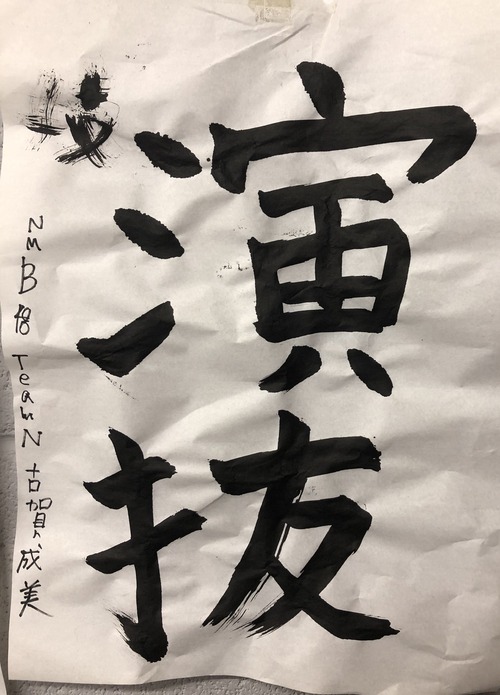 演抜
NMB48 Team N 古賀成美